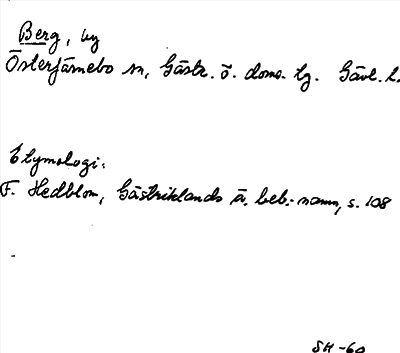 Berg, by
Österfärnebo sn, Gästr. ö. doms. lg. Gävl. l.
Etymologi:
F. Hedblom, Gästriklands ä. beb.-namn, s. 108
SH -60